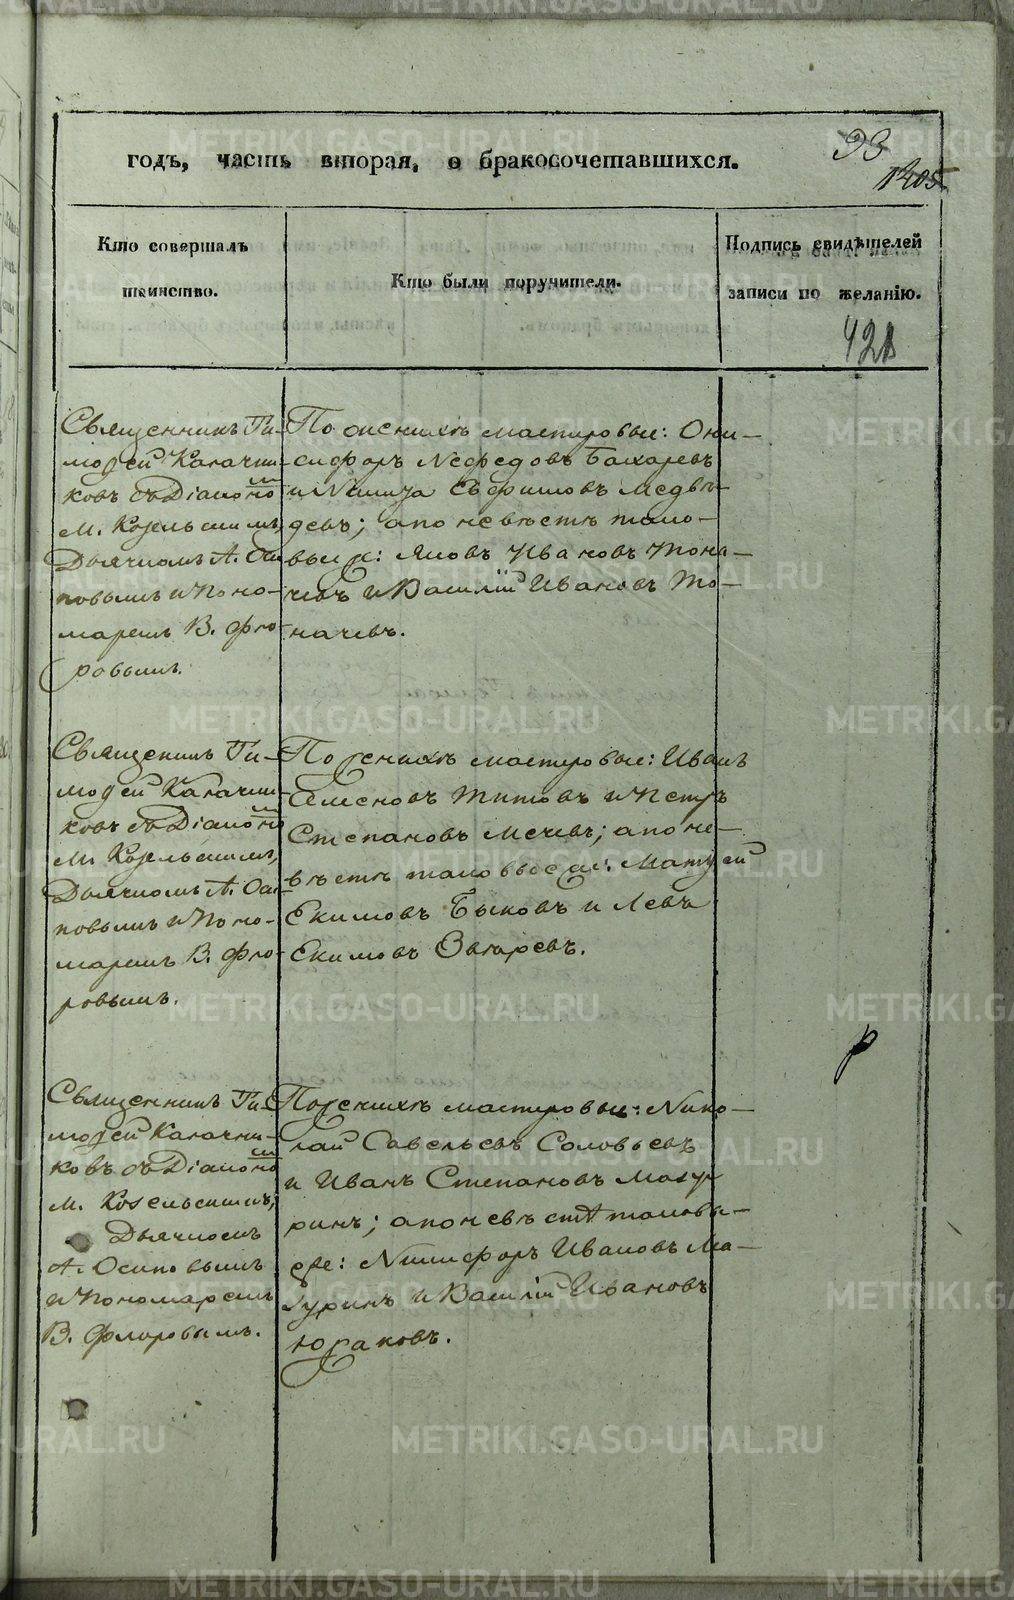 годъ, часть вторая, о бракосочетавшихся.
93
1205
Кто совершалъ
таинство.
Кто были поручители.
Подпись свидѣтелей
записи по желанію.
421
Священникъ Ти-
моѳей Калачни-
ковъ съ Діакономъ
М. Козельскимъ,
Дьячкомъ А. Оси-
повымъ и Поно-
маремъ В. Фло-
ровымъ.
По женихѣ мастеровые: Они-
сифоръ Нефедовъ Бахаревъ
и Никита Ефимовъ Медвѣ-
девъ; а по невѣстѣ тако-
выеже: Яковъ Ивановъ Тона-
чевъ и Василій Ивановъ То-
начевъ.
Священникъ Ти-
моѳей Калачни-
ковъ съ Діакономъ
М. Козельскимъ,
Дьячкомъ А. Оси-
повымъ и Поно-
маремъ В. Фло-
ровымъ.
По женихѣ мастеровые: Иванъ
Семеновъ Титовъ и Петръ
Степановъ Мечевъ; а по не-
вѣстѣ таковыеже: Матѳей
Екимовъ Быковъ и Левъ
Екимовъ Овчаревъ.
Священникъ Ти-
моѳей Калачни-
ковъ съ Діакономъ
М. Козельскимъ,
Дьячкомъ
А. Осиповымъ
и Пономаремъ
В. Флоровымъ.
По женихѣ мастеровые: Нико-
лай Савельевъ Соловьевъ
и Иванъ Степановъ Мазу-
ринъ; а по невѣстѣ таковы-
еже: Никифоръ Ивановъ Ма-
зуринъ и Василій Ивановъ
Юраковъ.